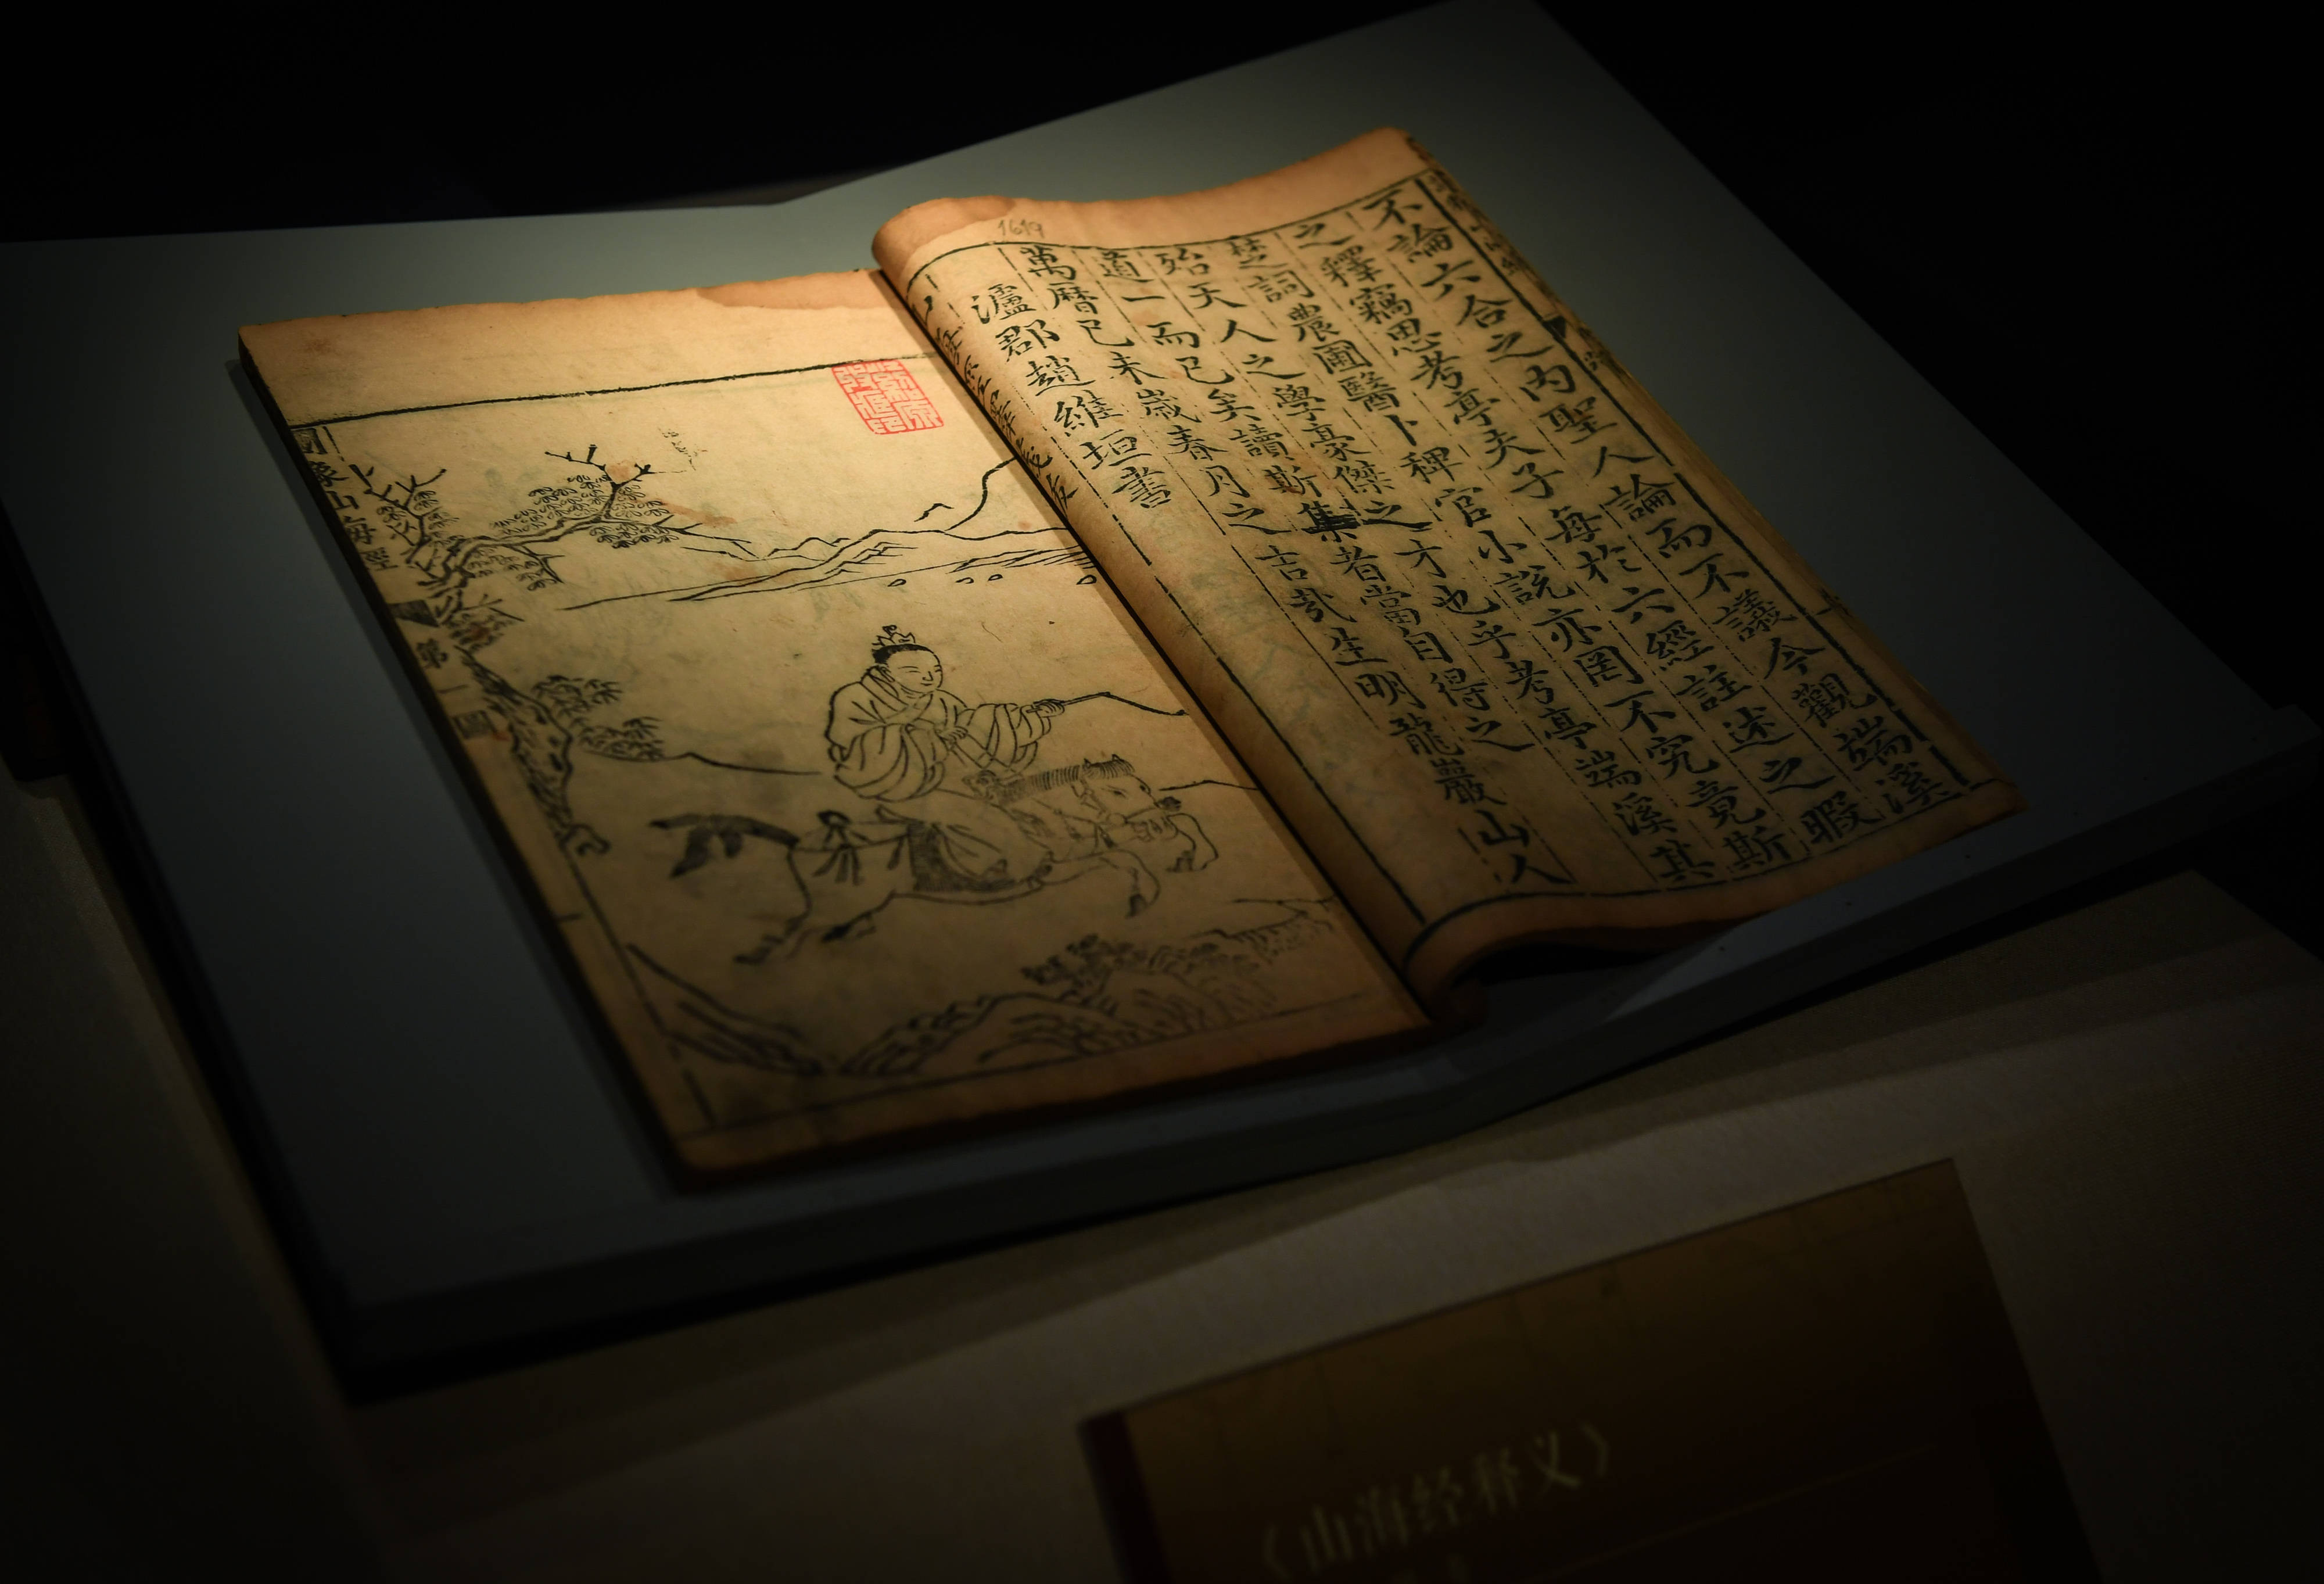 不論六合之内聖人論而不議今觀端溪
之釋竊思考亭夫子每於六經註述之暇
楚詞農圃醫卜稗官小說亦罔不究竟斯
殆天人之學豪傑之才也乎考亭端溪其
道一而已矣讀斯集者當自得之
萬曆已未歲春月之吉哉生明龍巖山人
瀘郡趙維垣書
1619
圖像山海經
第一圖
《山海经释义》